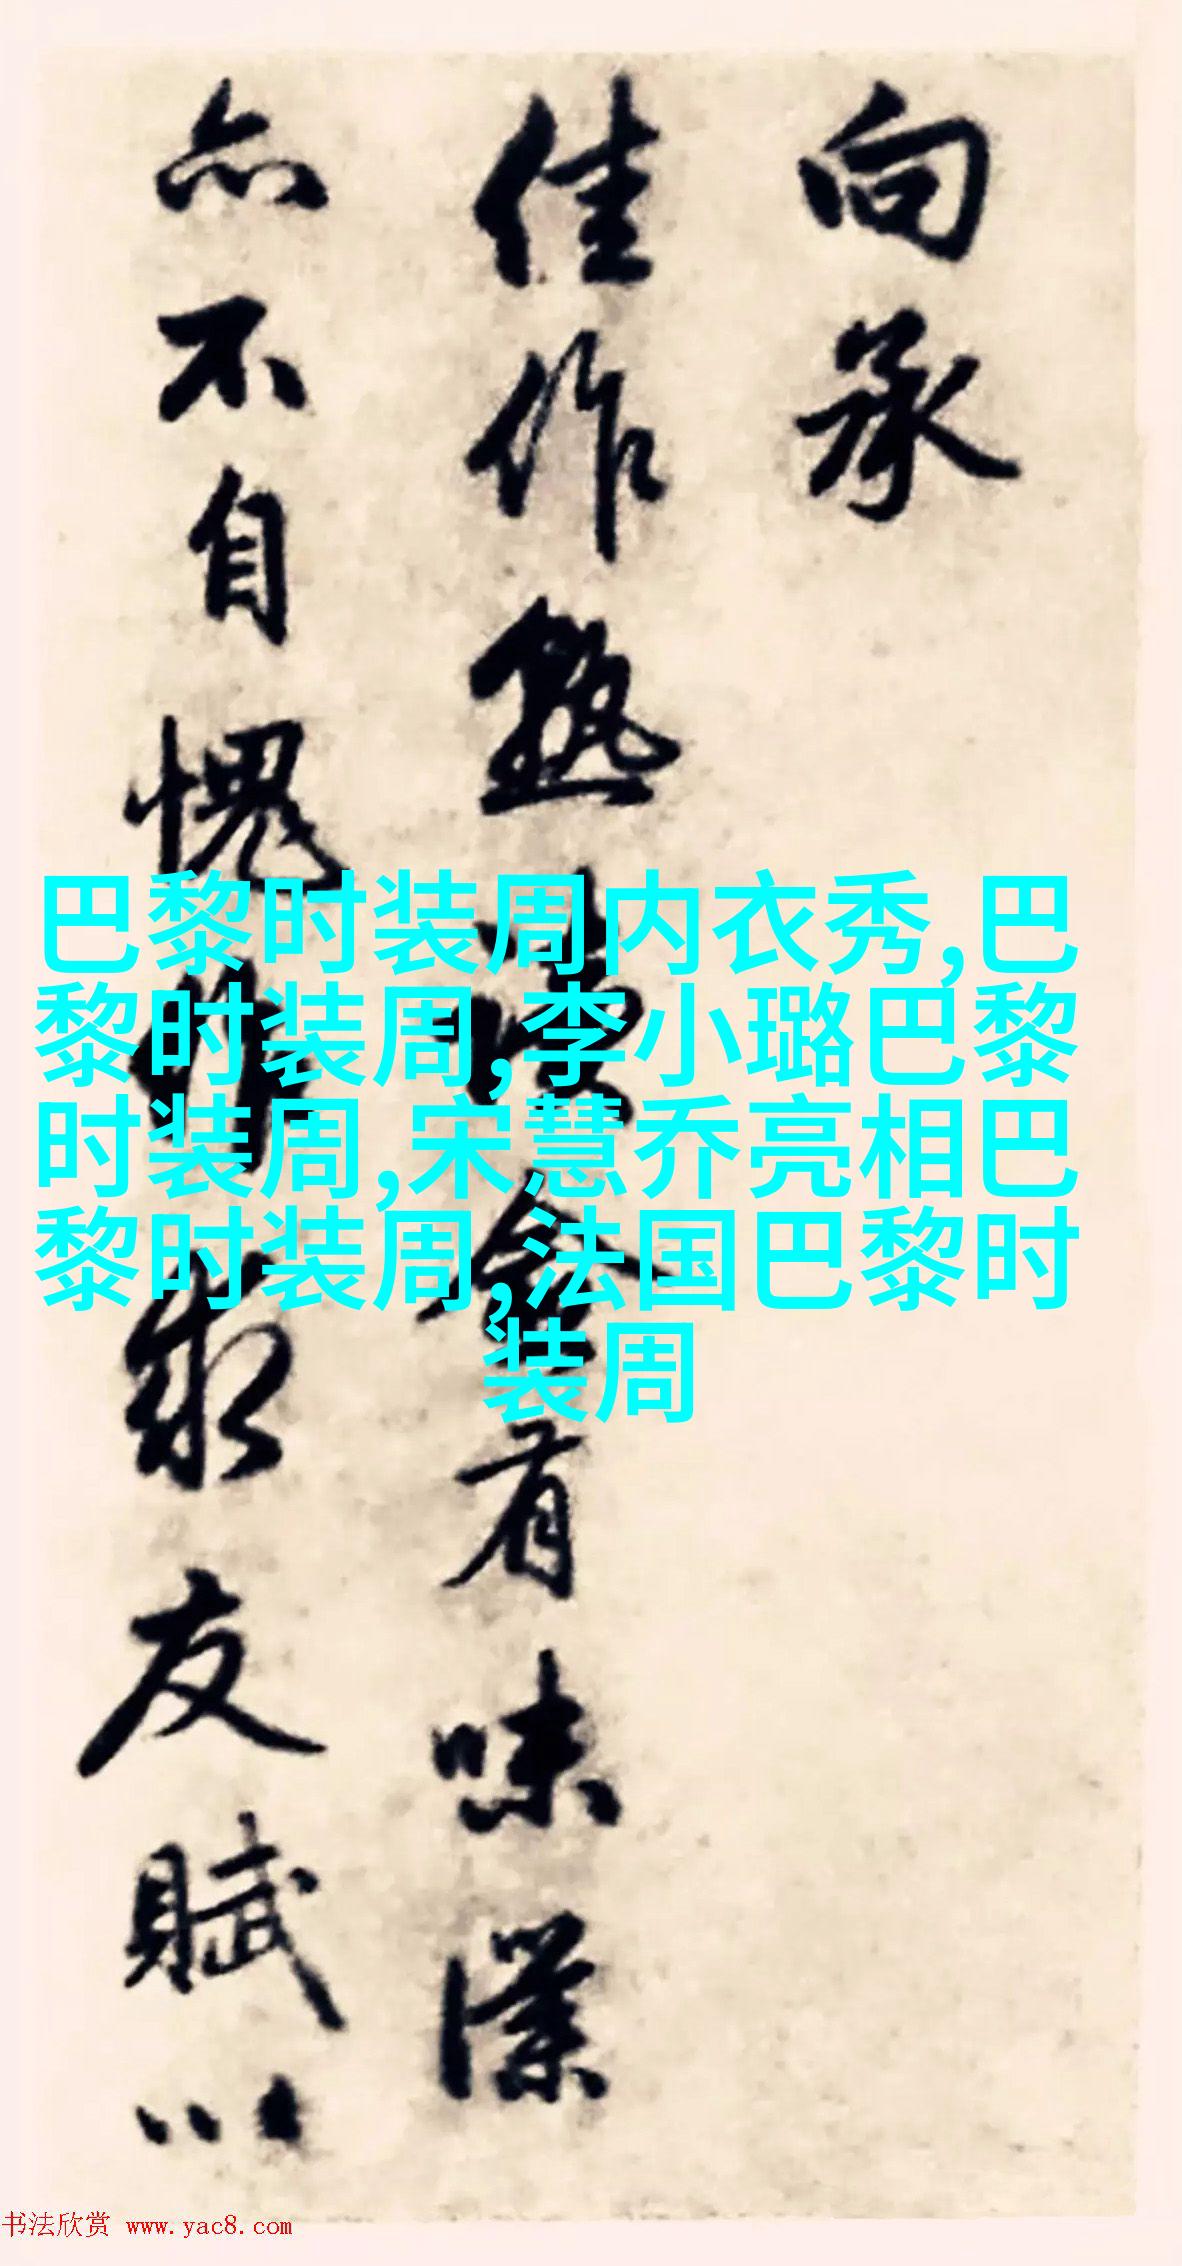 向承
佳作熟读愈有味仆
亦不自愧作求友赋以
巴黎时装周内衣秀,巴
黎时装周,李小璐巴黎
时装周,宋慧乔亮相巴
黎时装周,法国巴黎时
装周
书法欣赏 www.yac8.com